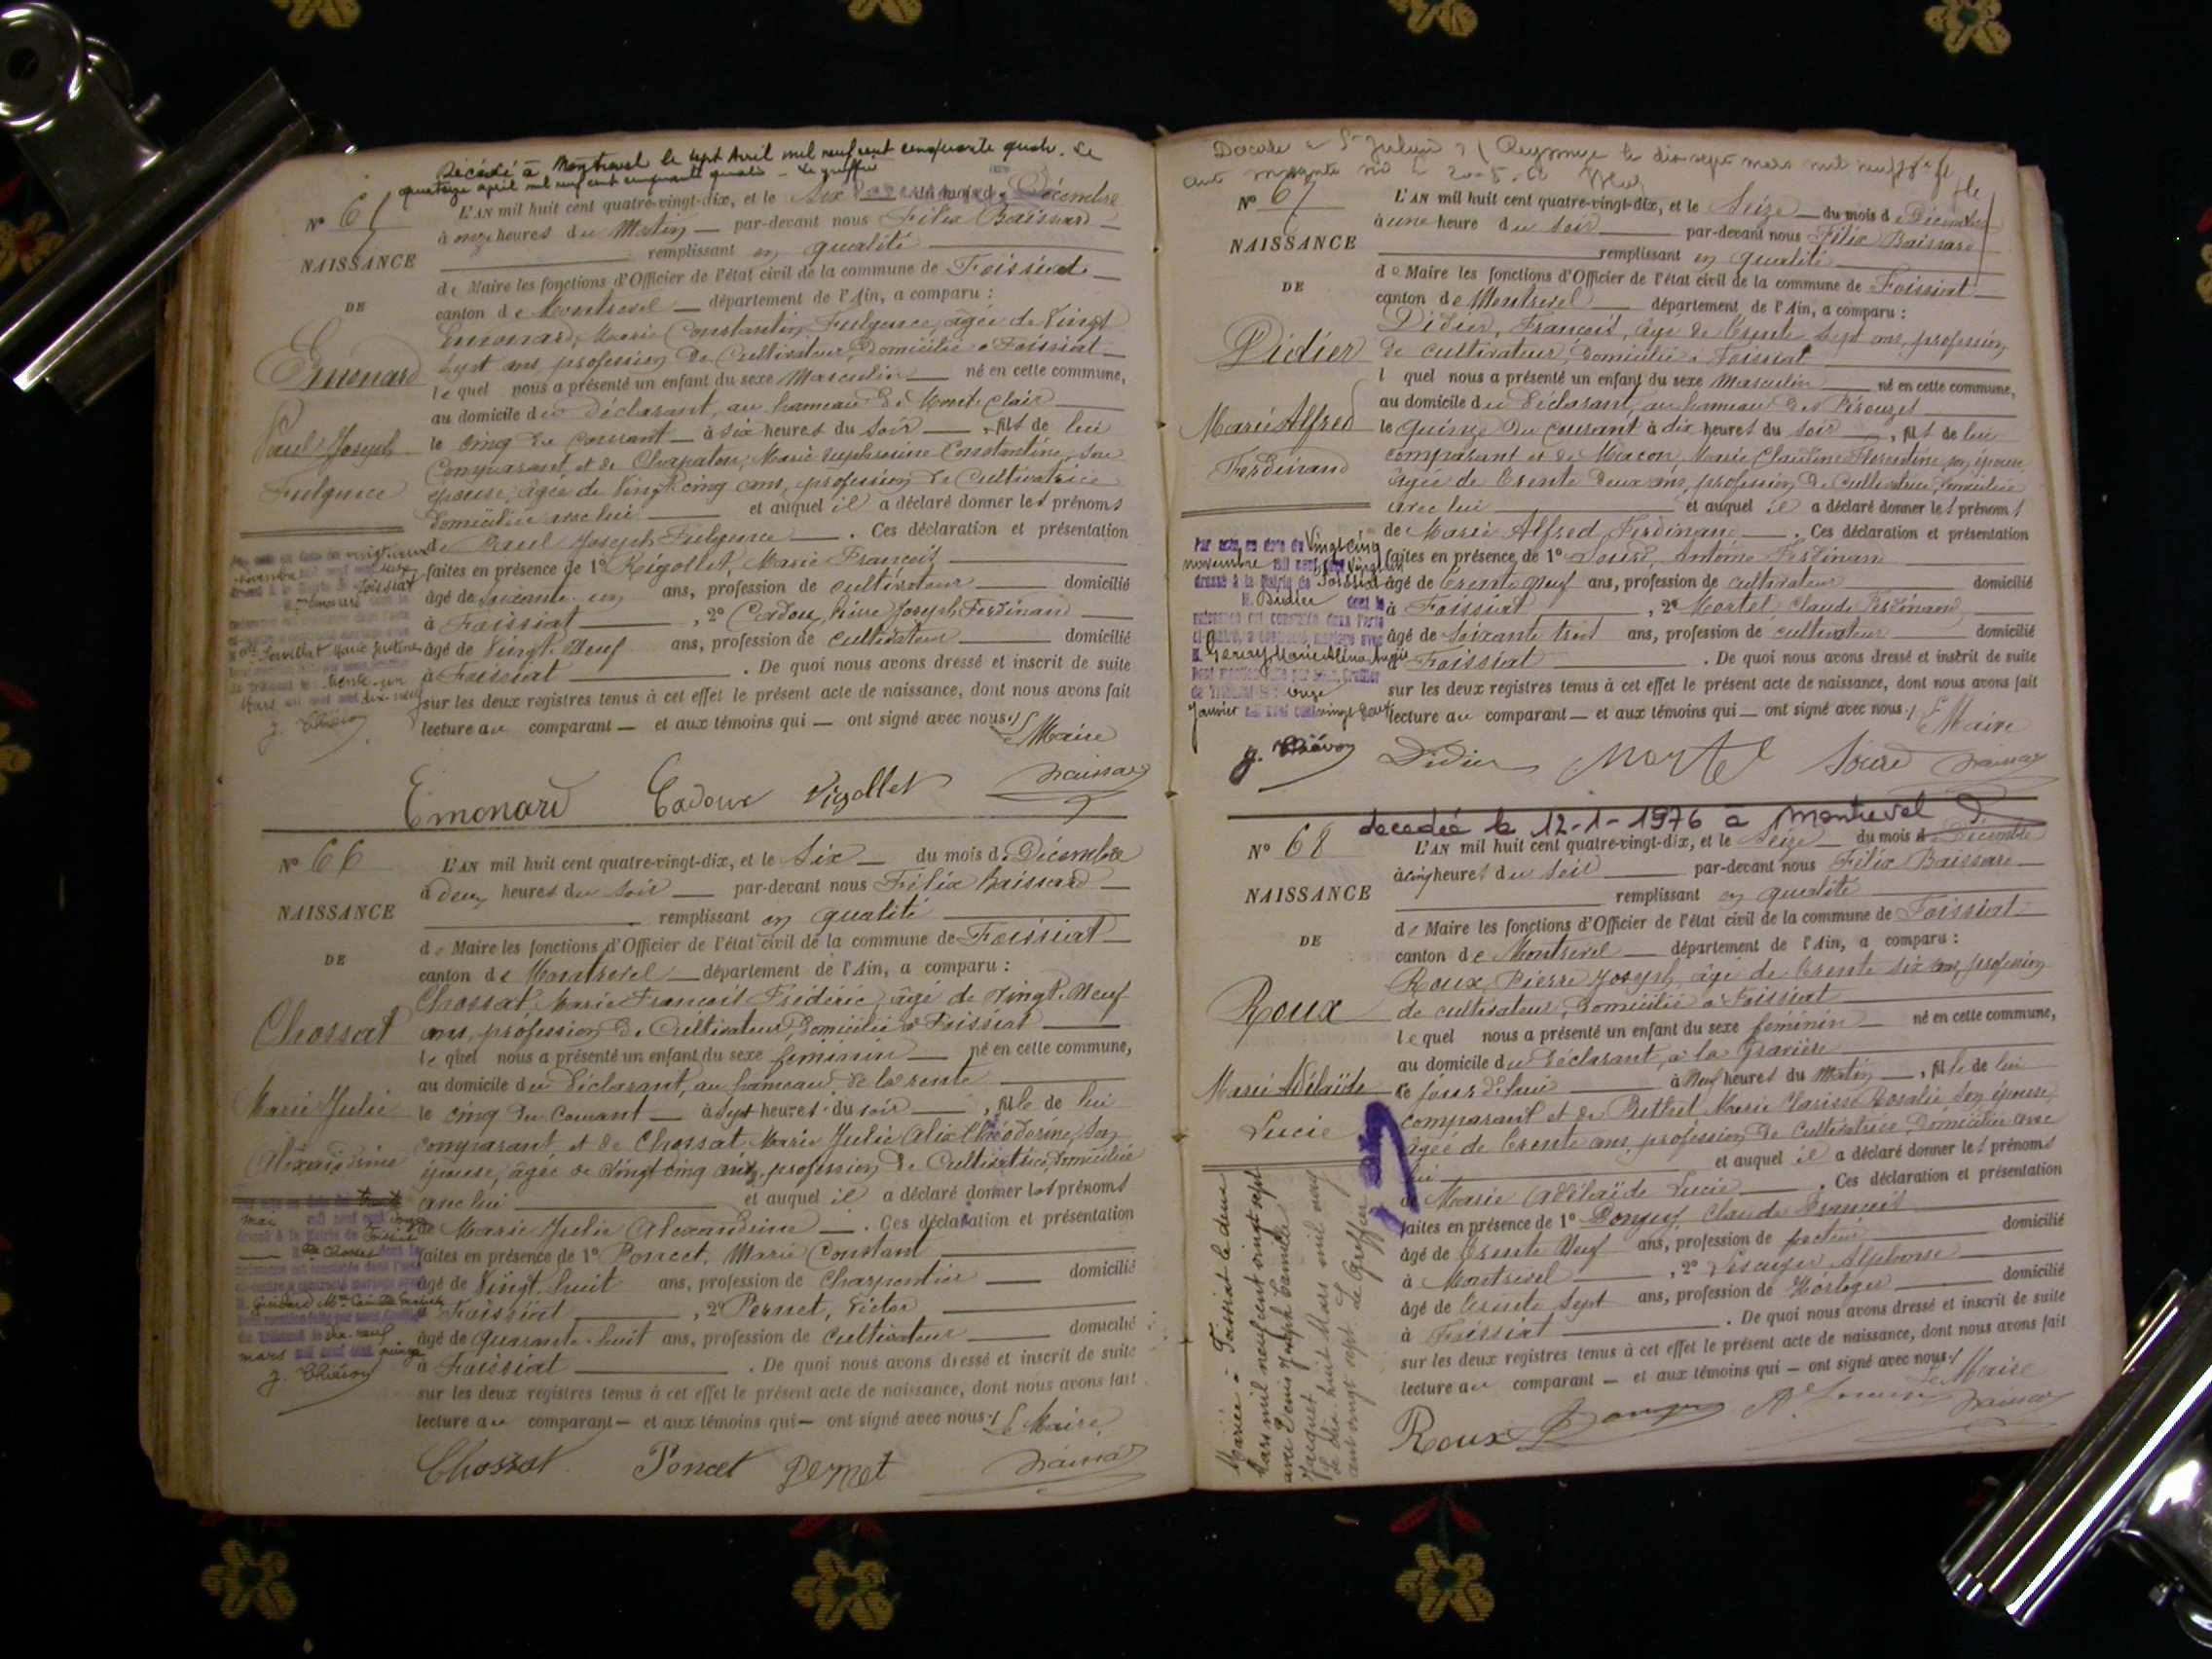 Décédé à Montrevel le sept Avril mil neuf cent cinquante quatre. Le
quatorze april mil neuf cent cinquante quatre - Le greffier
N° 65
L'AN mil huit cent quatre-vingt-dix, et le Six du mois de Décembre
à onze heures du Matin par-devant nous Félix Baissard
NAISSANCE
remplissant en qualité
de Maire les fonctions d'Officier de l'état civil de la commune de Foissiat
DE
canton de Montrevel département de l'Ain, a comparu :
Emonard
Emonard, Marie Constantin Fulgence, âgé de Vingt
sept ans, profession de Cultivateur, domicilié à Foissiat
lequel nous a présenté un enfant du sexe Masculin né en cette commune,
au domicile du déclarant, au hameau de Montclair
Paul Joseph
Fulgence
le cinq du courant à six heures du soir, fils de lui
Comparant et de Chapaton, Marie Euphrosine Constantine, son
épouse, âgée de Vingt cinq ans, profession de Cultivatrice
domiciliée avec lui et auquel il a déclaré donner les prénoms
de Paul Joseph Fulgence. Ces déclaration et présentation
faites en présence de 1° Rigollet, Marie François
âgé de soixante un ans, profession de cultivateur domicilié
à Foissiat, 2° Cadoux, Pierre Joseph Ferdinand
âgé de Vingt-Neuf ans, profession de cultivateur domicilié
à Foissiat. De quoi nous avons dressé et inscrit de suite
sur les deux registres tenus à cet effet le présent acte de naissance, dont nous avons fait
lecture au comparant et aux témoins qui ont signé avec nous./. Le Maire
Foissiat
Emonard
Servillat Marie Justine
trente-un
Mars mil neuf cent dix-neuf
Emonard Cadoux Rigollet Baissard
N° 66
L'AN mil huit cent quatre-vingt-dix, et le Six du mois de Décembre
à deux heures du soir par-devant nous Félix Baissard
NAISSANCE
remplissant en qualité
de Maire les fonctions d'Officier de l'état civil de la commune de Foissiat
DE
canton de Montrevel département de l'Ain, a comparu :
Chossat
Chossat Marie François Frédéric, âgé de Vingt-Neuf
ans, profession de Cultivateur, domicilié à Foissiat
lequel nous a présenté un enfant du sexe féminin né en cette commune,
au domicile du déclarant, au hameau de
Marie Julie
Alexandrine
le cinq du Courant à sept heures du soir, fille de lui
comparant et de Chossat Marie Julie Alix Théodorine, son
épouse, âgée de Vingt cinq ans, profession de Cultivatrice, domiciliée
avec lui et auquel il a déclaré donner les prénoms
de Marie Julie Alexandrine. Ces déclaration et présentation
faites en présence de 1° Poncet, Marie Constant
âgé de Vingt-huit ans, profession de Charpentier domicilié
à Foissiat, 2° Pernet, Victor
âgé de quarante-huit ans, profession de cultivateur domicilié
à Foissiat. De quoi nous avons dressé et inscrit de suite
sur les deux registres tenus à cet effet le présent acte de naissance, dont nous avons fait
lecture au comparant et aux témoins qui ont signé avec nous./. Le Maire,
Chossat Poncet Pernet Baissard
Décédé à St Julien s/ Reyssouze le dix sept mars mil neuf
N° 67
L'AN mil huit cent quatre-vingt-dix, et le Seize du mois de Décembre
à une heure du soir par-devant nous Félix Baissard
NAISSANCE
remplissant en qualité
de Maire les fonctions d'Officier de l'état civil de la commune de Foissiat
DE
canton de Montrevel département de l'Ain, a comparu :
Didier
Didier, François, âgé de trente sept ans, profession
de cultivateur, domicilié à Foissiat
l quel nous a présenté un enfant du sexe Masculin né en cette commune,
au domicile du déclarant, au hameau des Pérouzes
Marie Alfred
Ferdinand
le quinze du courant à dix heures du soir, fils de lui
comparant et de Macon, Marie Claudine Florentine son épouse,
âgée de trente deux ans, profession de cultivatrice, domiciliée
avec lui et auquel il a déclaré donner les prénoms
de Marie Alfred Ferdinand. Ces déclaration et présentation
faites en présence de 1° Antoine Ferdinand
âgé de trente neuf ans, profession de cultivateur domicilié
à Foissiat, 2° Mortel Claude Ferdinand
âgé de soixante trois ans, profession de cultivateur domicilié
à Foissiat. De quoi nous avons dressé et inscrit de suite
sur les deux registres tenus à cet effet le présent acte de naissance, dont nous avons fait
lecture au comparant et aux témoins qui ont signé avec nous./. Le Maire
Par acte en date du Vingt cinq
novembre mil neuf cent vingt un
dressé à la Mairie de Foissiat
M. Didier dont la
naissance est constatée dans l'acte
ci-contre, a contracté mariage avec
du Tribunal le onze
Janvier mil neuf cent vingt deux
Didier Mortel Baissard
decedée le 12-1-1976 à Montrevel
N° 68
L'AN mil huit cent quatre-vingt-dix, et le Seize du mois de Décembre
à cinq heures du soir par-devant nous Félix Baissard
NAISSANCE
remplissant en qualité
de Maire les fonctions d'Officier de l'état civil de la commune de Foissiat
DE
canton de Montrevel département de l'Ain, a comparu :
Roux
Roux, Pierre Joseph, âgé de trente six ans, profession
de cultivateur, domicilié à Foissiat
lequel nous a présenté un enfant du sexe féminin né en cette commune,
au domicile du déclarant, à la Gravière
Marie Adélaïde
Lucie
ce jourd'hui à Neuf heures du Matin, fille de lui
comparant et de Rethet Marie Clarisse Rosalie son épouse,
âgée de trente ans, profession de cultivatrice, domiciliée avec
lui et auquel il a déclaré donner les prénoms
de Marie Adélaïde Lucie. Ces déclaration et présentation
faites en présence de 1° Donguy, Claude François
âgé de trente Neuf ans, profession de facteur domicilié
à Montrevel, 2° Alphonse
âgé de trente sept ans, profession de Horloger domicilié
à Foissiat. De quoi nous avons dressé et inscrit de suite
sur les deux registres tenus à cet effet le présent acte de naissance, dont nous avons fait
lecture au comparant et aux témoins qui ont signé avec nous./. Le Maire
Mariée à Foissiat le deux
Mars mil neuf cent vingt sept
avec Denis Joseph Camille
Jacquet. Mars mil neuf
cent vingt sept. Le Greffier
Roux Donguy Baissard